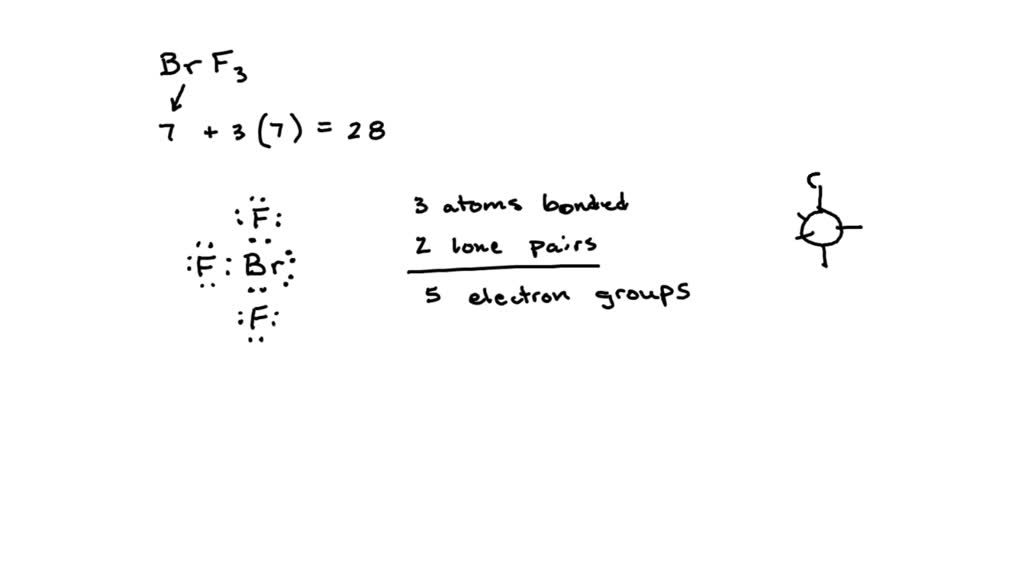 BrF₃
7 + 3(7) = 28
:F:
:F:Br:
:F:
3 atoms bonded
2 lone pairs
5 electron groups